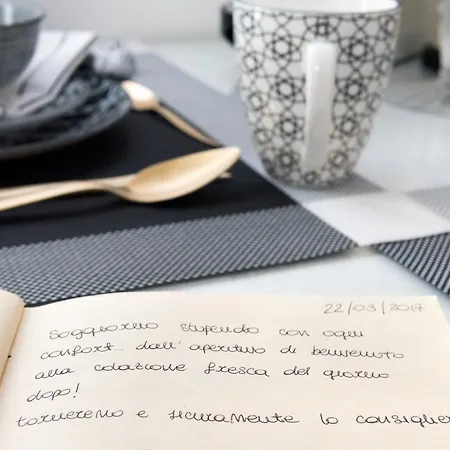 22/03/2017
Soggiorno stupendo con ogni
confort... dall'aperitivo di benvenuto
alla colazione fresca del giorno
dopo!
torneremo e sicuramente lo consiglier